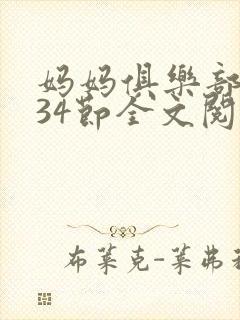 妈妈俱樂部
34節全文閱
布莱克-莱弗利